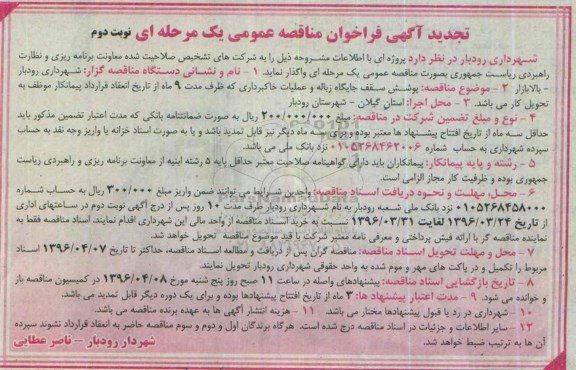 تجدید آگهی فراخوان مناقصه عمومی یک مرحله ای نوبت دوم
شهرداری رودبار در نظر دارد پروژه ای با اطلاعات مشروحه ذیل را به شرکت های تشخیص صلاحیت شده معاونت برنامه ریزی و نظارت
راهبردی ریاست جمهوری بصورت مناقصه عمومی یک مرحله ای واگذار نماید. ۱ - نام و نشانی دستگاه مناقصه گزار: شهرداری رودبار
- بالابازار ۲ - موضوع مناقصه: پوشش سقف جایگاه زباله و عملیات خاکبرداری که ظرف مدت ۹ ماه از تاریخ انعقاد قرارداد پیمانکار موظف به
تحویل کار می باشد. ۳ - محل اجرا: استان گیلان - شهرستان رودبار
۴ - نوع و مبلغ تضمین شرکت در مناقصه: مبلغ ۲۰۰/۰۰۰/۰۰۰ ریال به صورت ضمانتنامه بانکی که مدت اعتبار تضمین مذکور باید
حداقل سه ماه از تاریخ افتتاح پیشنهاد ها معتبر بوده و برای سه ماه دیگر نیز قابل تمدید باشد و یا به صورت اسناد خزانه یا واریز وجه نقد به حساب
سپرده شهرداری به حساب شماره ۰۱۰۵۲۶۸۴۶۳۰۰۶ نزد بانک ملی می باشد.
۵ - رشته و پایه پیمانکار: پیمانکاران باید دارای گواهینامه صلاحیت معتبر حداقل پایه ۵ رشته ابنیه از معاونت برنامه ریزی و راهبردی ریاست
جمهوری بوده و ظرفیت کار مجاز الزامی است.
۶ - محل، مهلت و نحوه دریافت اسناد مناقصه: واجدین شرایط می توانند ضمن واریز مبلغ ۳۰۰/۰۰۰ ریال به حساب شماره
۰۱۰۵۲۶۸۴۵۸۰۰۰ نزد بانک ملی شعبه رودبار به نام شهرداری رودبار ظرف مدت ۱۰ روز پس از درج آگهی نوبت دوم در ساعتهای اداری
از تاریخ ۱۳۹۶/۰۳/۲۴ لغایت ۱۳۹۶/۰۳/۳۱ نسبت به خرید اسناد مناقصه از واحد مالی این شهرداری اقدام نمایند. اسناد مناقصه فقط به
نماینده مناقصه گر با ارائه فیش پرداختی و معرفی نامه معتبر شرکت با قید موضوع مناقصه تحویل خواهد شد.
۷ - محل و مهلت تحویل اسناد مناقصه: مناقصه گران پس از دریافت و مطالعه اسناد مناقصه، حداکثر تا تاریخ ۱۳۹۶/۰۴/۰۷ اسناد
مربوط را تکمیل و در پاکت های مهر و موم شده به واحد حقوقی شهرداری رودبار تحویل نمایند.
۸ - تاریخ بازگشایی اسناد مناقصه: پیشنهادهای واصله در ساعت ۱۱ صبح روز پنج شنبه مورخ ۱۳۹۶/۰۴/۰۸ در کمیسیون مناقصه باز
و خوانده می شود. ۹ - مدت اعتبار پیشنهاد ها: ۳ ماه از تاریخ افتتاح پیشنهادها بوده و برای یک دوره دیگر قابل تمدید می باشد.
۱۰ - شهرداری در رد یا قبول پیشنهادها مختار می باشد. ۱۱ - هزینه انتشار آگهی ها به عهده برنده مناقصه می باشد.
۱۲ - سایر اطلاعات و جزئیات در اسناد مناقصه درج شده است. هرگاه برندگان اول و دوم و سوم مناقصه حاضر به انعقاد قرارداد نشوند سپرده
آن ها به ترتیب ضبط خواهد شد.
شهردار رودبار - ناصر عطایی